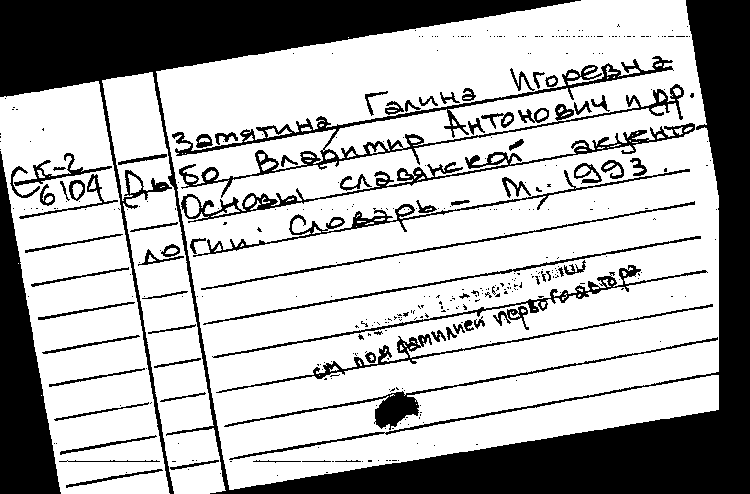 Замятина, Галина Игоревна
СК-2
6104
Дыбо, Владимир Антонович и др.
Основы славянской акценто-
логии: Словарь. – М., 1993.
см под фамилией первого автора